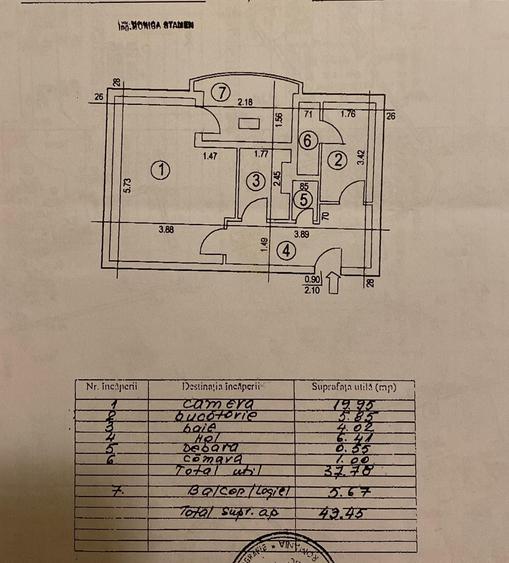 ing. MONICA STAMEN
28
26
7
2.18
1.56
71
1.76
26
6
1.47
1.77
2
3.42
1
5.73
3
2.45
85
5
70
3.88
3.89
1.49
4
0.90
2.10
28
Nr. încăperii Destinația încăperii Suprafața utilă (mp)
1 camera 19.95
2 bucătorie 5.85
3 baie 4.02
4 Hol 6.41
5 Debara 0.55
6 Cămara 1.00
Total util 37.78
7. Balcon/Logiei 5.67
Total supr. ap 43.45
ROMANIA *